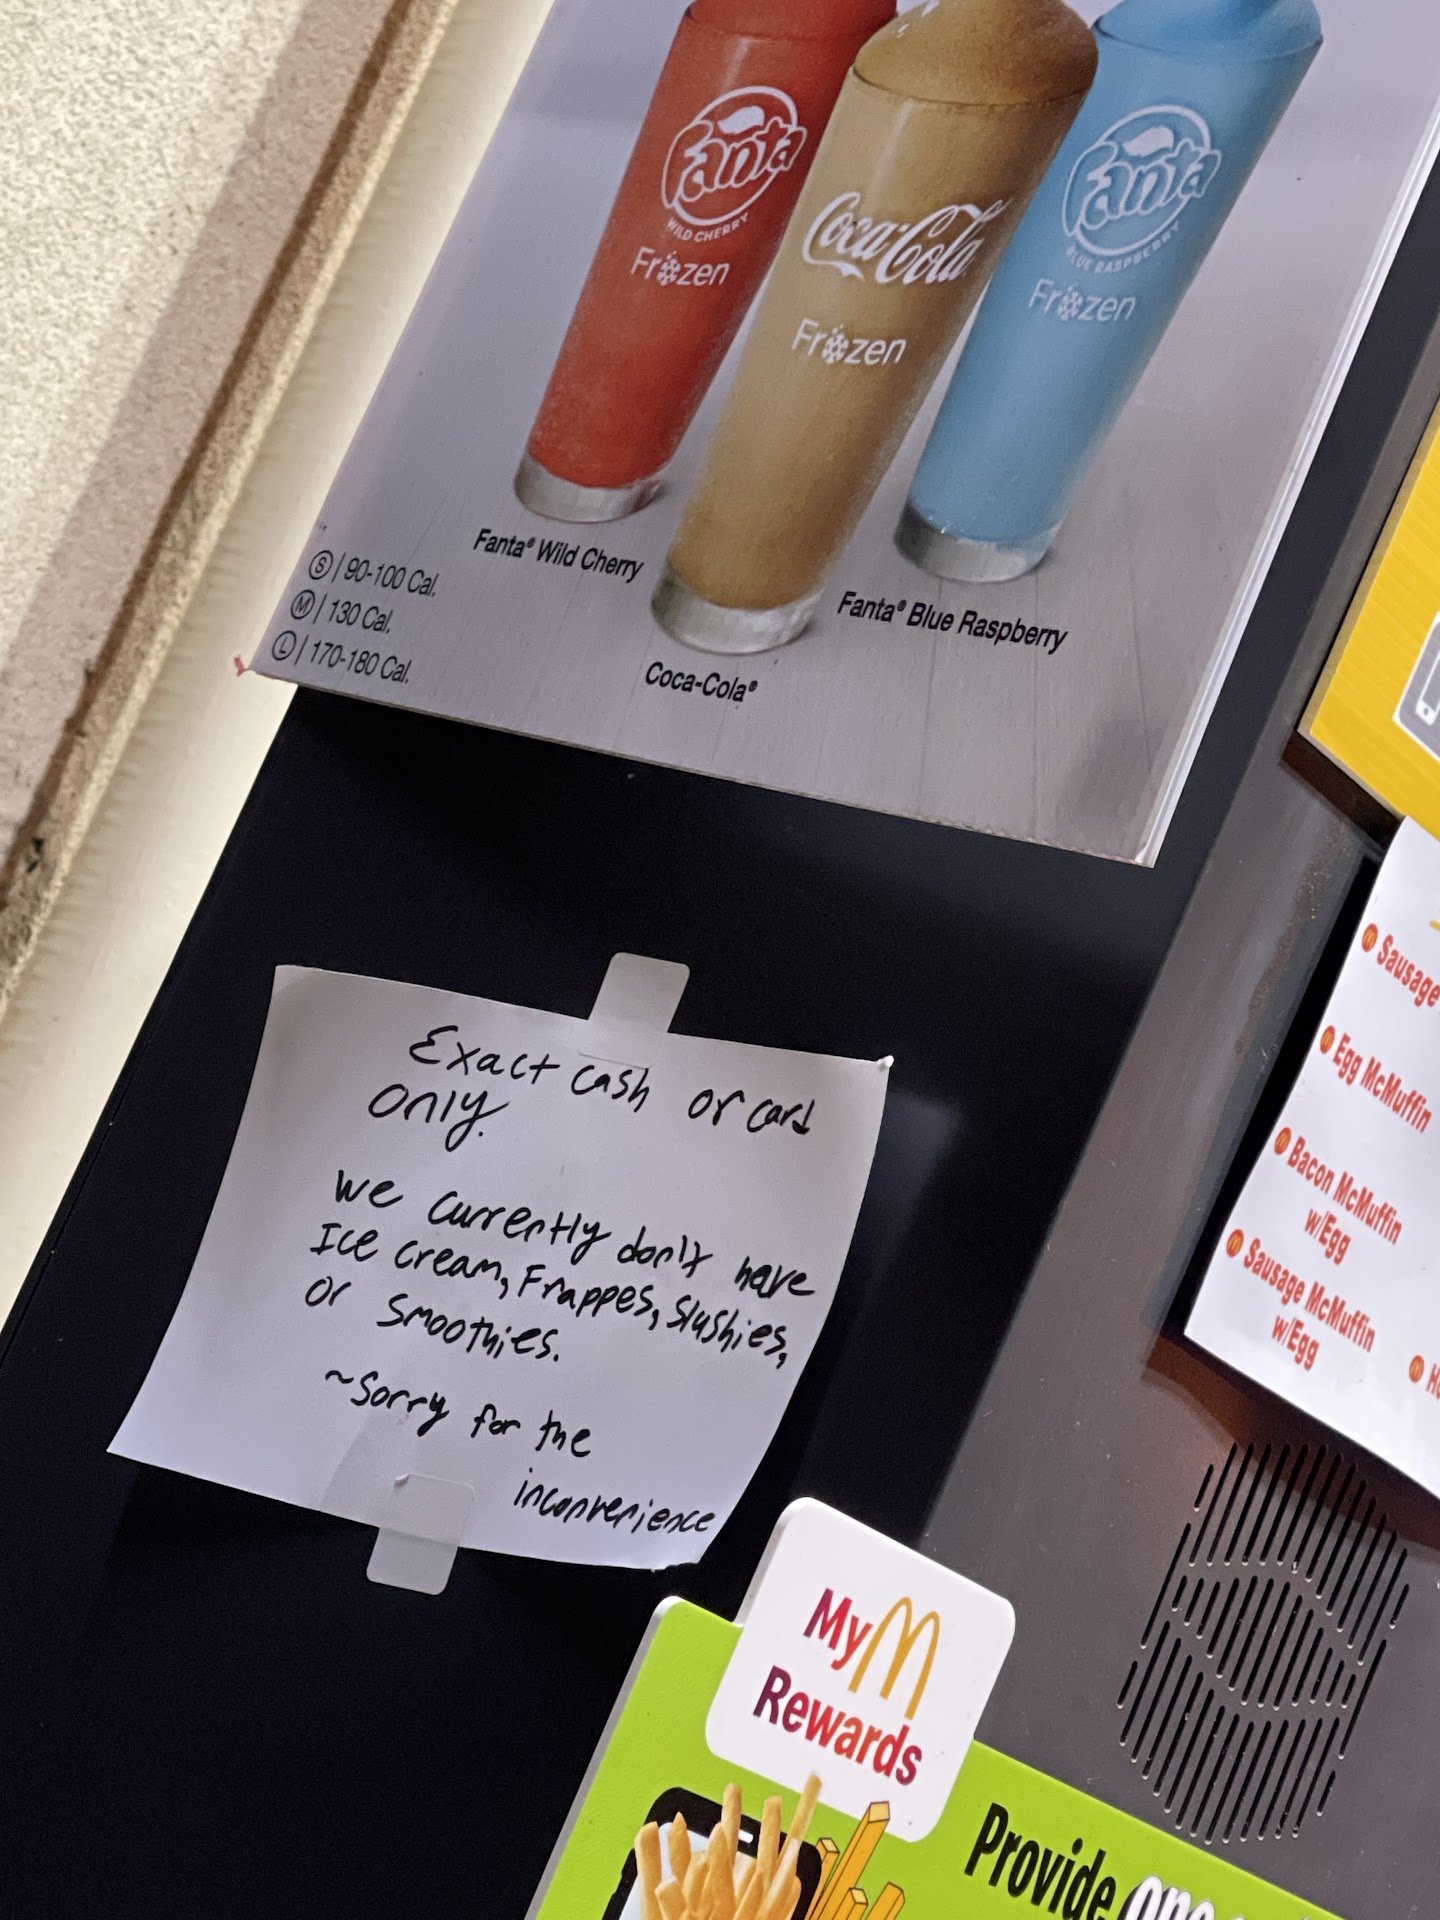 Fanta
WILD CHERRY
Frozen
Coca-Cola
Frozen
Fanta
BLUE RASPBERRY
Frozen
Fanta® Wild Cherry
Coca-Cola®
Fanta® Blue Raspberry
S | 90-100 Cal.
M | 130 Cal.
L | 170-180 Cal.
Exact cash or card
only.
we currently don't have
Ice cream, Frappes, slushies,
or smoothies.
~Sorry for the
inconvenience
Sausage
Egg McMuffin
Bacon McMuffin
w/Egg
Sausage McMuffin
w/Egg
My M
Rewards
Provide one